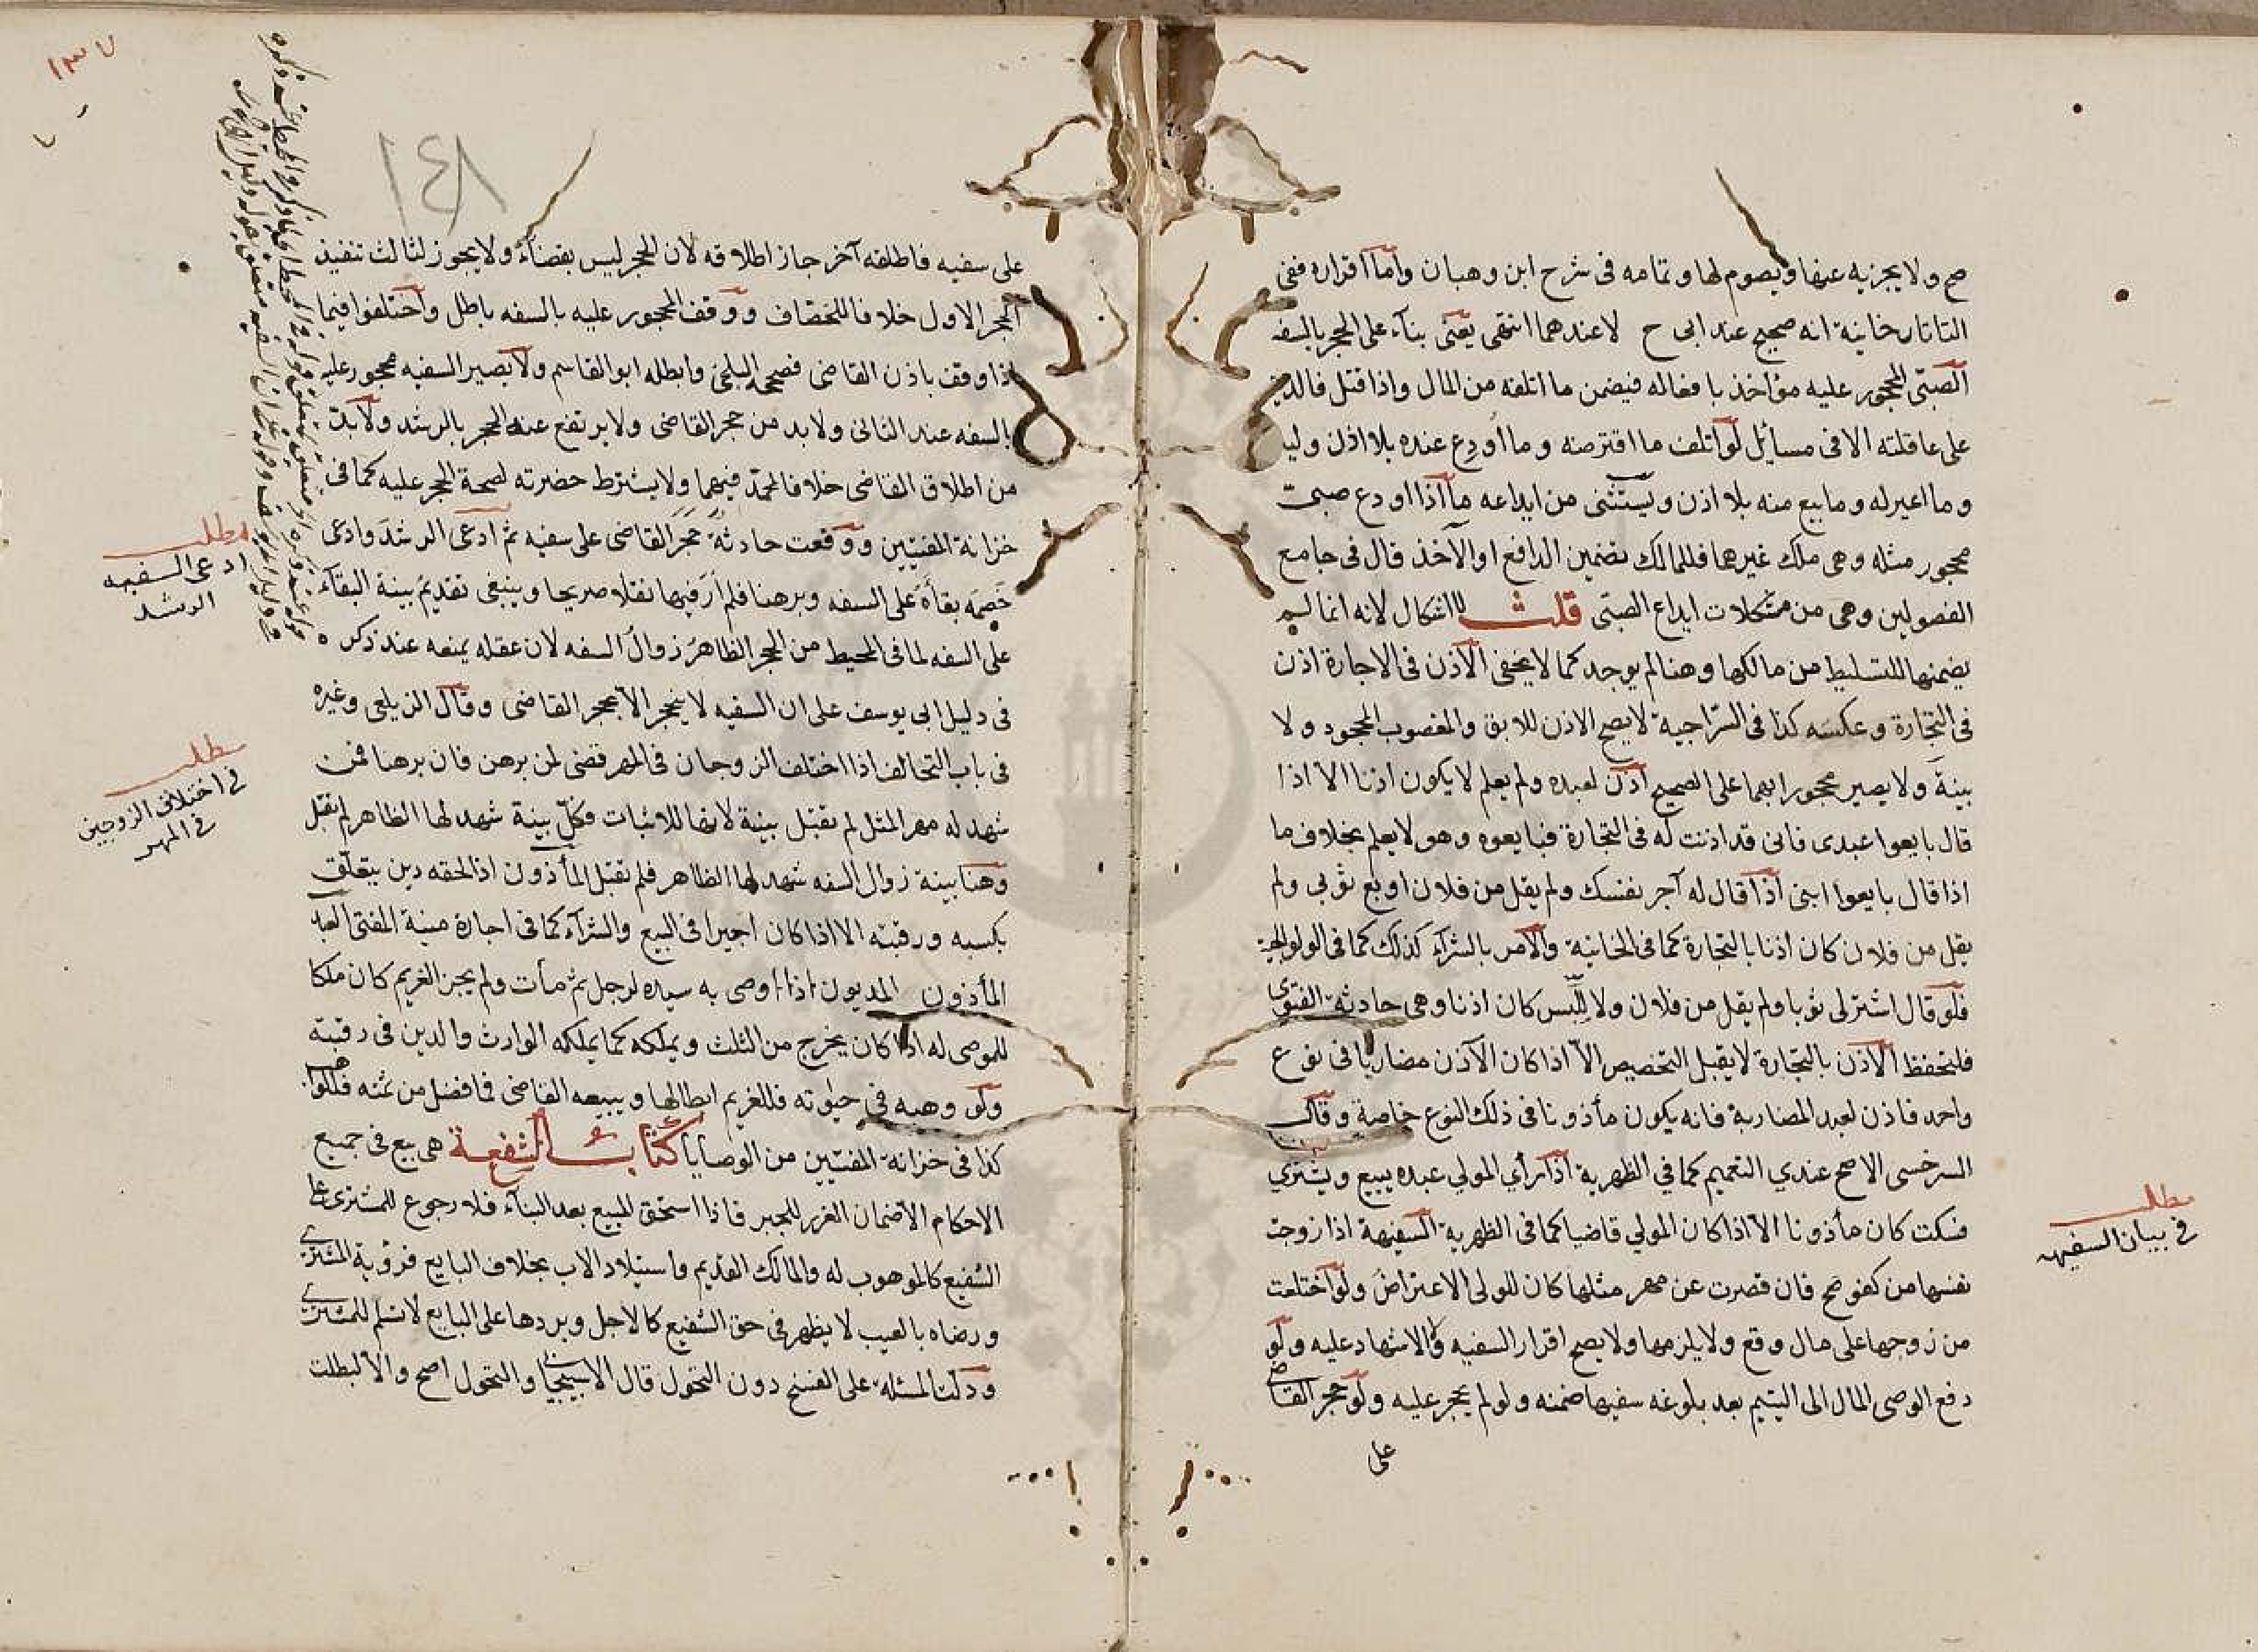 صح ولا يجزيه عنها ويصوم لها وتمامه في شرح ابن وهبان وأما اقراره ففي
التاتارخانية انه صحيح عند ابي ح لا عندهما انتهى يعني بناء على الحجر بالسفه
الصبي المحجور عليه مؤاخذ بافعاله فيضمن ما اتلفه من المال واذا قتل فالدية
على عاقلته الا في مسائل لو اتلف ما اقترضه وما أودع عنده بلا اذن وليه
وما اعير له وما بيع منه بلا اذن ويستثنى من ايداعه ما اذا اودع صبي
محجور مثله وهي ملك غيرهما فللمالك تضمين الدافع او الآخذ قال في جامع
الفصولين وهي من مشكلات ايداع الصبي قلت لا اشكال لانه انما لم
يضمنها للتسليط من مالكها وهنا لم يوجد كما لا يخفى الاذن في الاجارة اذن
في التجارة وعكسه كذا في السراجية لا يصح الاذن للابق والمغصوب المجحود ولا
بينة ولا يصير محجورا بهما على الصحيح اذن لعبده ولم يعلم لا يكون اذنا الا اذا
قال بايعوا عبدي فاني قد اذنت له في التجارة فبايعوه وهو لا يعلم بخلاف ما
اذا قال بايعوا ابني اذا قال له آجر نفسك ولم يقل من فلان او بع ثوبي ولم
يقل من فلان كان اذنا بالتجارة كما في الخانية والأمر بالشراء كذلك كما في الولوالجية
فلو قال اشتر لي ثوبا ولم يقل من فلان ولا للبس كان اذنا وهي حادثة الفتوى
فلتحفظ الاذن بالتجارة لا يقبل التخصيص الا اذا كان الآذن مضاربا في نوع
واحد فاذن لعبد المضاربة فانه يكون مأذونا في ذلك النوع خاصة وقال
السرخسي الاصح عندي التعميم كما في الظهرية اذا رأي المولي عبده يبيع ويشتري
فسكت كان مأذونا الا اذا كان المولي قاضيا كما في الظهرية السفيهة اذا زوجت
نفسها من كفو صح فان قصرت عن مهر مثلها كان للولي الاعتراض ولو اختلعت
من زوجها على مال وقع ولا يلزمها ولا يصح اقرار السفيه ولا الاشهاد عليه ولو
دفع الوصي المال الى اليتيم بعد بلوغه سفيها ضمنه ولو لم يحجر عليه ولو حجر القاضي
على
مطلب
في بيان السفيهه
١٣٧
١٤٨
على سفيه فاطلقه آخر جاز اطلاقه لان الحجر ليس بقضاء ولا يجوز لثالث تنفيذ
الحجر الاول خلافا للخصاف ووقف المحجور عليه بالسفه باطل واختلفوا فيما
اذا وقف باذن القاضي فصححه البلخي وابطله ابو القاسم ولا يصير السفيه محجور عليه
بالسفه عند الثاني ولا بد من حجر القاضي ولا يرتفع عنه الحجر بالرشد ولا بد
من اطلاق القاضي خلافا لمحمد فيهما ولا يشترط حضرته لصحة الحجر عليه كما في
خزانة المفتيين ووقعت حادثة حجر القاضي على سفيه ثم ادعى الرشد وادعى
خصمه بقأه على السفه وبرهنا فلم أر فيها نقلا صريحا وينبغي تقديم بينة البقاء
على السفه لما في المحيط من الحجر الظاهر زوال السفه لان عقله يمنعه عند ذكره
في دليل ابي يوسف على ان السفيه لا ينحجر الا بحجر القاضي وقال الزيلعي وغيره
في باب التحالف اذا اختلف الزوجان في المهر قضى لمن برهن فان برهنا فمن
شهد له مهر المثل لم تقبل بينة لانها للاثبات فكل بينة شهد لها الظاهر لم تقبل
وهنا بينة زوال السفه شهد لها الظاهر فلم تقبل المأذون اذا لحقه دين يتعلق
بكسبه ورقبته الا اذا كان اجيرا في البيع والشراء كما في اجارة منية المفتي العبد
المأذون المديون اذا اوصى به سيده لرجل ثم مات ولم يجز الغريم كان ملكا
للموصى له اذا كان يخرج من الثلث ويملكه كما يملكه الوارث والدين في رقبته
ولو وهبه في حيوته فللغريم ابطالها ويبيعه القاضي فما فضل من ثمنه فللواهب
كذا في خزانة المفتيين من الوصايا كتاب الشفعة هي بيع في جميع
الاحكام الا ضمان الغرر للجبر فاذا استحق المبيع بعد البناء فلا رجوع للمشتري على
الشفيع كالموهوب له والمالك القديم واستيلاد الاب بخلاف البايع فرؤية المشتري
ورضاه بالعيب لا يظهر في حق الشفيع كالاجل ويردها على البايع لا تسلم للمشتري
ودلت المسئله على الفسخ دون التحول قال الاسبيجابي والتحول اصح والا لبطلت
مطلب
ادعى السفيه
الرشد
مطلب
في اختلاف الزوجين
في المهر